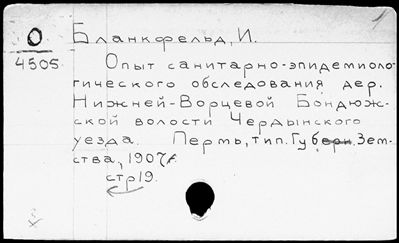 О
4505.
Бланкфельд, И.
Опыт санитарно-эпидемиоло-
гического обследования дер.
Нижней-Ворцевой Бондюж-
ской волости Чердынского
уезда. Пермь, тип. Губерн. Зем-
ства, 1907г.
стр19.